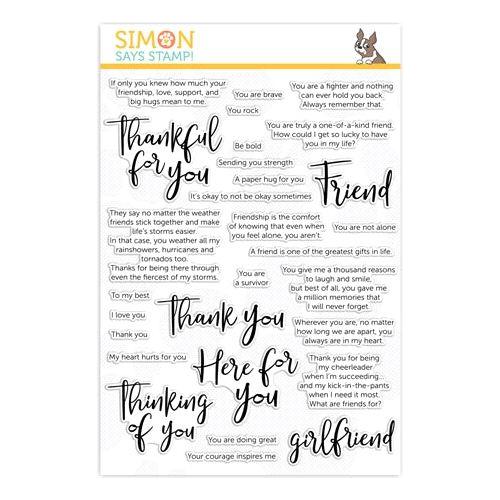 SIMON
SAYS STAMP!
If only you knew how much your
friendship, love, support, and
big hugs mean to me.
You are brave
You are a fighter and nothing
can ever hold you back.
Always remember that.
You rock
Thankful
for you
You are truly a one-of-a-kind friend.
How could I get so lucky to have
you in my life?
Be bold
Sending you strength
A paper hug for you
Friend
It's okay to not be okay sometimes
They say no matter the weather
friends stick together and make
life's storms easier.
In that case, you weather all my
rainshowers, hurricanes and
tornados too.
Thanks for being there through
even the fiercest of my storms.
Friendship is the comfort
of knowing that even when
you feel alone, you aren't.
You are not alone
A friend is one of the greatest gifts in life.
You are
a survivor
You give me a thousand reasons
to laugh and smile,
but best of all, you gave me
a million memories that
I will never forget.
To my best
I love you
Thank you
Thank you
Wherever you are, no matter
how long we are apart, you
always are in my heart.
My heart hurts for you
Here for
you
Thank you for being
my cheerleader
when I'm succeeding...
and my kick-in-the-pants
when I need it most.
What are friends for?
Thinking
of you
You are doing great
Your courage inspires me
girlfriend